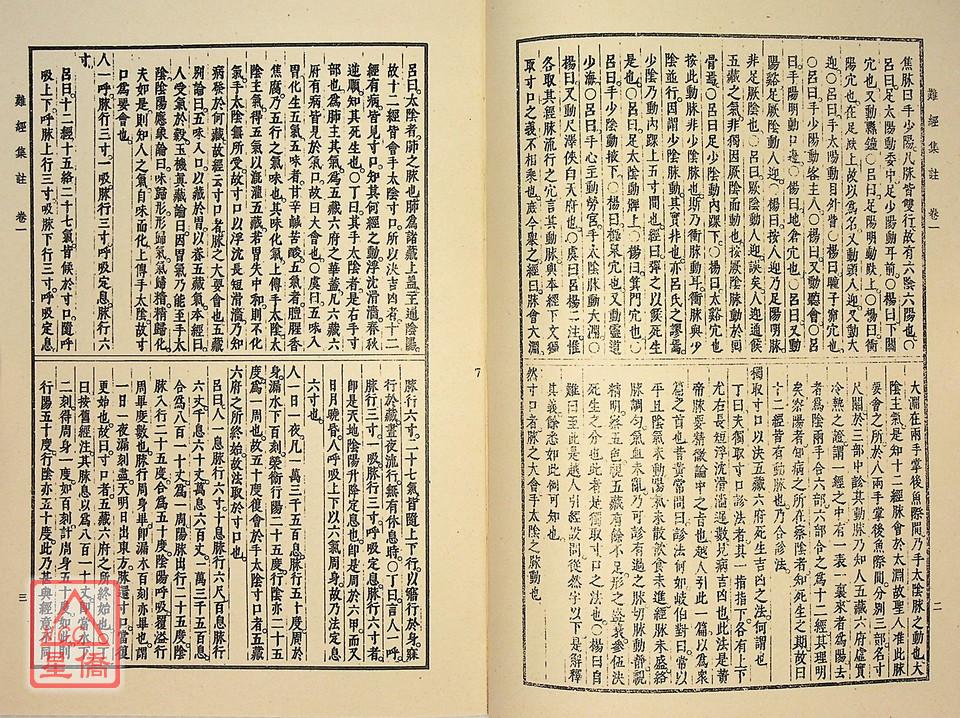 難經集註 卷一
二
焦脉曰手少陽尺脉皆雙行故有六陰六陽也○
呂曰足太陽動委中足少陽動耳前○楊曰下關
穴也又動懸鍾○呂曰足陽明動趺上○楊曰衝
陽穴也在足趺上故以為名又動頸人迎又動大
迎○呂曰手太陽動目外眥○楊曰瞳子窌穴也
○呂曰手少陽動客主人○楊曰又動聽會○呂
曰手陽明動口邊○楊曰地倉穴也○呂曰又動
陽谿足厥陰動人迎○楊曰按人迎乃足陽明脉
非足厥陰也○呂曰厥陰動人迎誤矣人迎通候
五藏之氣非獨因厥陰而動也按厥陰脉動於回
骨邊○呂曰足少陰動內踝下○楊曰太谿穴也
按此動脉非少陰脉也斯乃衝脉動耳衝脉與少
陰並行因謂少陰脉動其實非也亦呂氏之謬焉
少陰乃動內踝上五寸間也經曰彈之以候死生
是也○呂曰足太陰動脾上○楊曰箕門穴也○
呂曰手少陰動腋下○楊曰極泉穴也又動靈道
少海○呂曰手心主動勞宮手太陰脉動大淵○
楊曰又動尺澤俠白天府也○虞曰呂楊二注惟
各取其經脉流行之穴言其動脉與本經下文獨
取寸口之義不相乘也應今舉之經曰脉會大淵
大淵在兩手掌後魚際間乃手太陰脉之動也大
陰主氣是知十二經脉會於太淵故聖人准此脉
要會之所於人兩手掌後魚際間分別三部名寸
尺關於三部中診其動脉乃知人五藏六府虛實
冷熱之證謂一經之中有一表一裏來者為陽去
者為陰兩手合六部六部合之為十二經其理明
矣察陽者知病之所在察陰者知死生之期故曰
十二經皆有動脉也乃合診法
獨取寸口以決五藏六府死生吉凶之法何謂也
丁曰夫獨取寸口診法者其一指指下各有上下
左右長短浮沈滑濇遲數見病吉凶也此法是黃
帝脉要精微論中之旨也越人引此一篇以為衆
篇之首也昔黃帝問曰診法何如岐伯對曰常以
平旦陰氣未動陽氣未散飲食未進經脉未盛絡
脉調勻氣血未亂乃可診有過之脉切脉動靜視
精明察五色觀五藏有餘不足形之盛衰參伍決
死生之分也此者是獨取寸口之法也○楊曰自
難曰至此是越人引經設問從然字以下是解釋
其義餘悉如此例可知也
然寸口者脉之大會手太陰之脉動也
呂曰太陰者肺之脉也肺為諸藏上蓋主通陰陽
故十二經皆會手太陰寸口所以決吉凶者十二
經有病皆見寸口知其何經之動浮沈滑濇春秋
逆順知其死生也○丁曰其手太陰者是右手寸
部也為肺主其氣為五藏六府之華蓋凡六藏六
府有病皆見於氣口故曰大會也○虞曰五味入
胃化生五氣五味者甘辛鹹苦酸五氣者羶腥香
焦腐乃五行之氣味也其味化氣上傳手太陰太
陰主氣得五氣以溉灌五藏若胃失中和則不化
氣手太陰無所受故寸口以浮沈長短滑濇乃知
病發於何藏故經云寸口者脉之大要會也五藏
別論曰五味入口以藏於胃以養五藏氣本經曰
人受氣於穀玉機真藏論曰因胃氣乃能至手太
陰陰陽應象論曰味歸形形歸氣氣歸精精歸化
夫如是則知人之氣自味而化上傳手太陰故寸
口為要會也
人一呼脉行三寸一吸脉行三寸呼吸定息脉行六
寸
呂曰十二經十五絡二十七氣皆候於寸口隨呼
吸上下呼脉上行三寸吸脉下行三寸呼吸定息
脉行六寸二十七氣皆隨上下行以寤行於身寐
行於藏晝夜流行無有休息時○丁曰言人一呼
脉行三寸一吸脉行三寸呼吸定息脉行六寸者
即是天地陰陽升降定息也即是周於六甲而又
日月曉昏人呼吸上下以六氣周身故乃法定息
六寸也
人一日一夜凡一萬三千五百息脉行五十度周於
身漏水下百刻榮衛行陽二十五度行陰亦二十五
度為一周也故五十度復會於手太陰寸口者五藏
六府之所終始故法取於寸口也
呂曰人一息脉行六寸十息脉行六尺百息脉行
六丈千息六十丈萬息六百丈一萬三千五百息
合為八百一十丈為一周陽脉出行二十五度陰
脉入行二十五度合為五十度陰陽呼吸覆溢行
周畢度數也脉行周身畢即漏水百刻亦畢也謂
一日一夜漏刻盡天明日出東方脉還寸口當復
更始也故曰寸口者五藏六府之所終始也○丁
曰按舊經注其脉息以為八百一十丈即當水下
二刻得周身一度如百刻計周身五十度如此則
行陽五十度行陰亦五十度此乃甚與經意不同
難經集註 卷一
三
7
星僑